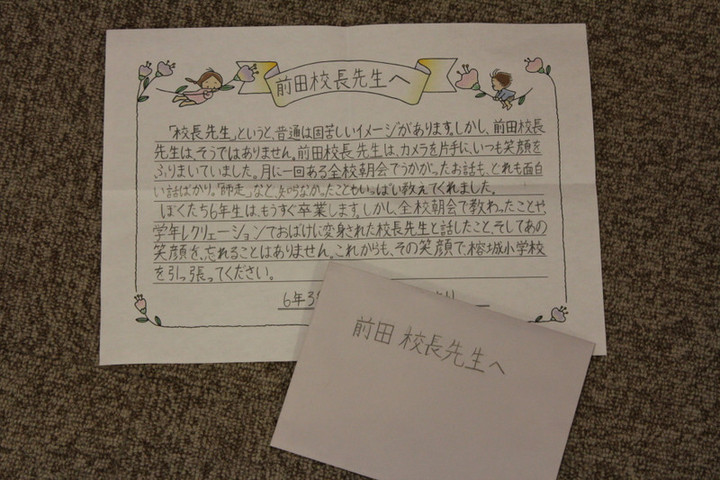 前田校長先生へ
「校長先生」というと、普通は固苦しいイメージがあります。しかし、前田校長
先生は、そうではありません。前田校長先生は、カメラを片手に、いつも笑顔を
ふりまいていました。月に一回ある全校朝会でうかがったお話も、どれも面白
い話ばかり。「師走」など、知らなかったこともいっぱい教えてくれました。
ぼくたち6年生は、もうすぐ卒業します。しかし、全校朝会で教わったことや、
学年レクリェーションでおばけに変身された校長先生と話したこと、そしてあの
笑顔を、忘れることはありません。これからも、その笑顔で、榕城小学校
を引っ張ってください。
6年3
前田 校長先生へ